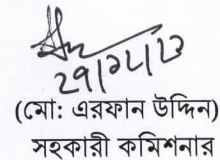 ২৭/১২/২৩
(মো: এরফান উদ্দিন)
সহকারী কমিশনার